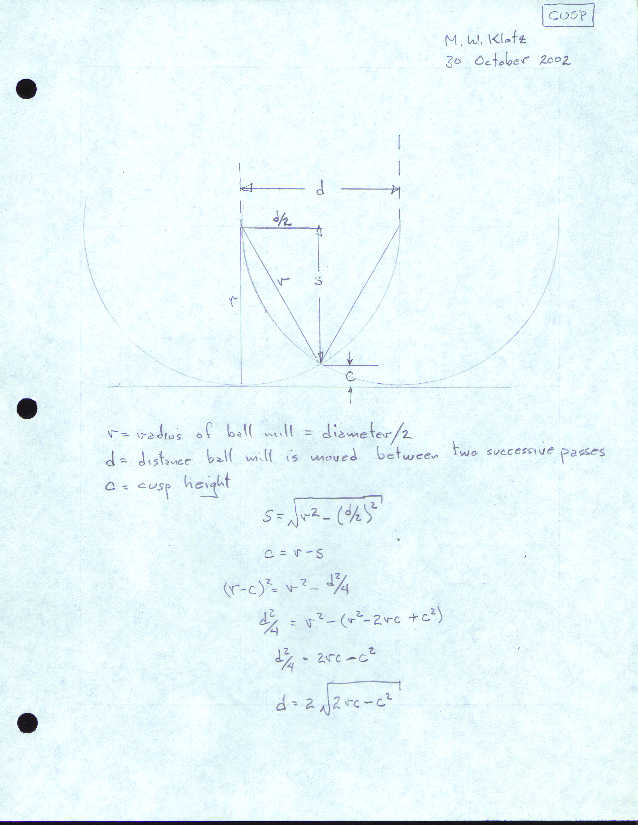 CUSP
M. W. Klotz
30 October 2002
d
d/2
r
r
s
c
r = radius of ball mill = diameter/2
d = distance ball mill is moved between two successive passes
c = cusp height
s = √(r² - (d/2)²)
c = r - s
(r-c)² = r² - d²/4
d²/4 = r² - (r² - 2rc + c²)
d²/4 = 2rc - c²
d = 2√(2rc - c²)